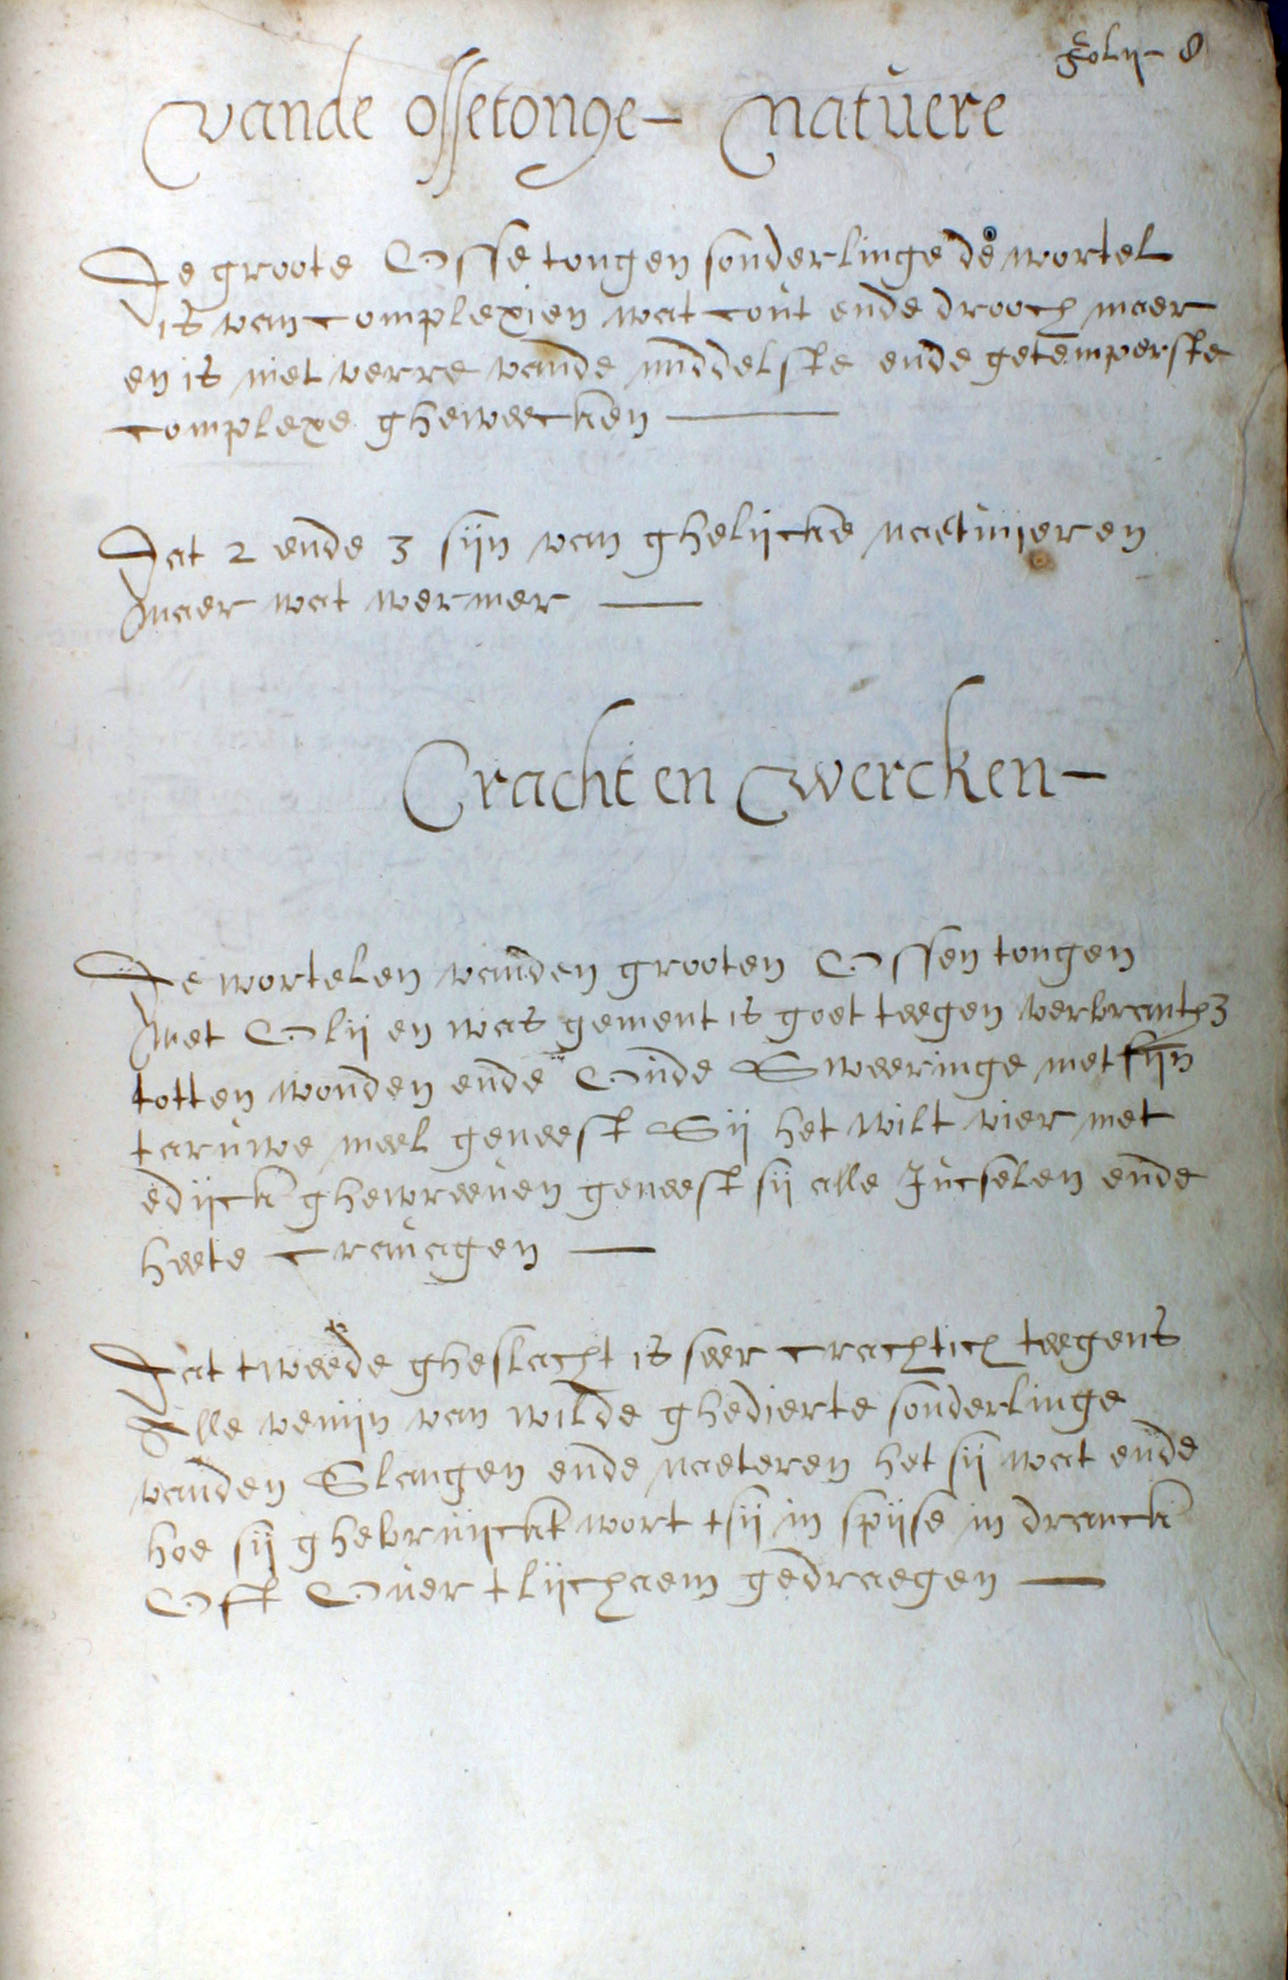 foly - 8
Vande ossetonge - Natuere
De groote Osse tongen sonderlinge de wortel
is van complexien wat cout ende drooch maer
en is niet verre vande middelste ende getemperste
complexe gheweecken —
Dat 2 ende 3 sijn van ghelijcke naetuijeren
maer wat wermer —
Cracht en Wercken -
De wortelen vanden grooten Ossen tongen
Met Olij en was gement is goet teegen verbranth3
totten wonden ende Oude Sweeringe met fijn
taruwe meel geneest Sij het wilt vier met
edijck ghewreeven geneest sij alle Jucselen ende
heete crauagen —
Dat tweede gheslacht is seer crachtich teegens
Alle venijn van wilde ghedierte sonderlinge
vanden Slangen ende naeteren het sij wat ende
hoe sij ghebruijckt wort tsij in spijse in dranck
Oft Over tlijchaem gedraegen —